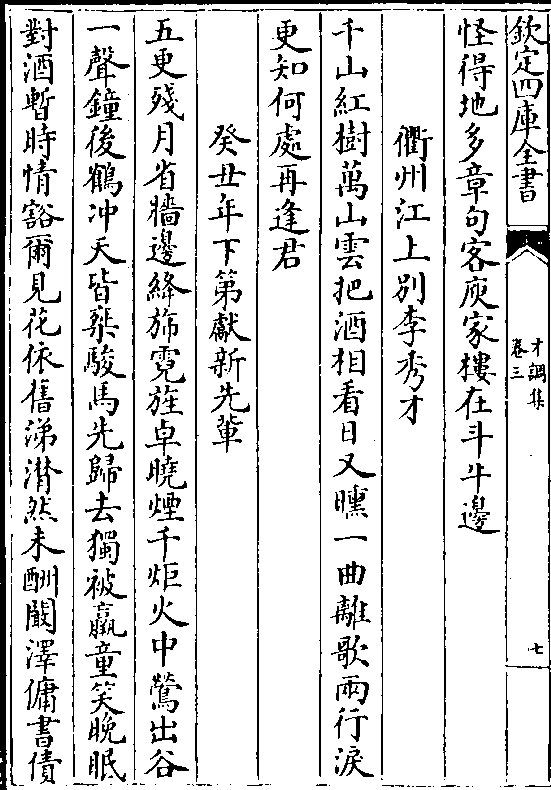 欽定四庫全書
才調集
卷三
七
怪得地多章句客庾家樓在斗牛邊
衢州江上別李秀才
千山紅樹萬山雲把酒相看日又曛一曲離歌兩行淚
更知何處再逢君
癸丑年下第獻新先輩
五更殘月省牆邊絳斾霓旌卓曉煙千炬火中鶯出谷
一聲鐘後鶴冲天皆乘駿馬先歸去獨被羸童笑晚眠
對酒暫時情豁爾見花依舊涕潸然未酬闞澤傭書債